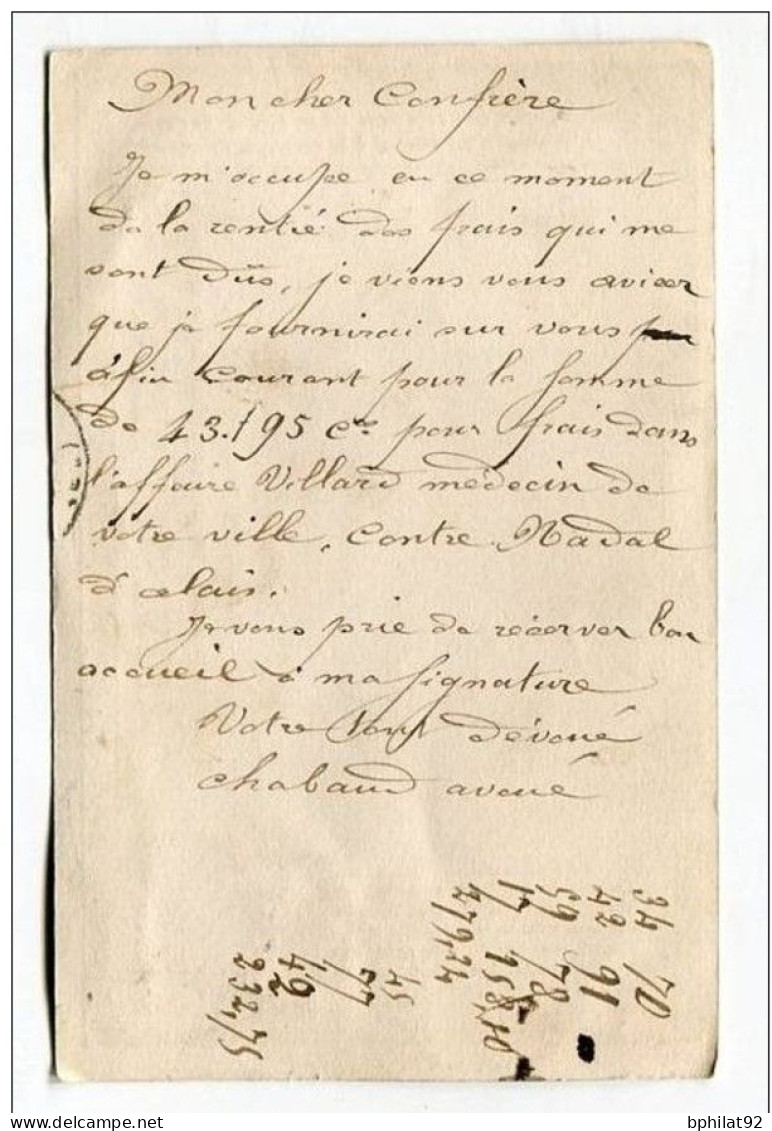 Mon cher Confrère
Je m'occupe en ce moment
de la rentié des frais qui me
sont dûs, je viens vous aviser
que je fournirai sur vous
à fin courant pour la somme
de 43.f 95 ces pour frais dans
l'affaire Villard medecin de
votre ville, contre Nadal
d'alais.
Je vous prie de réserver bon
accueil à ma signature
Votre tout dévoué
chabaud avoué
34 70
42 91
59 78
17
279,24
45
77
49
232,75
bphilat92